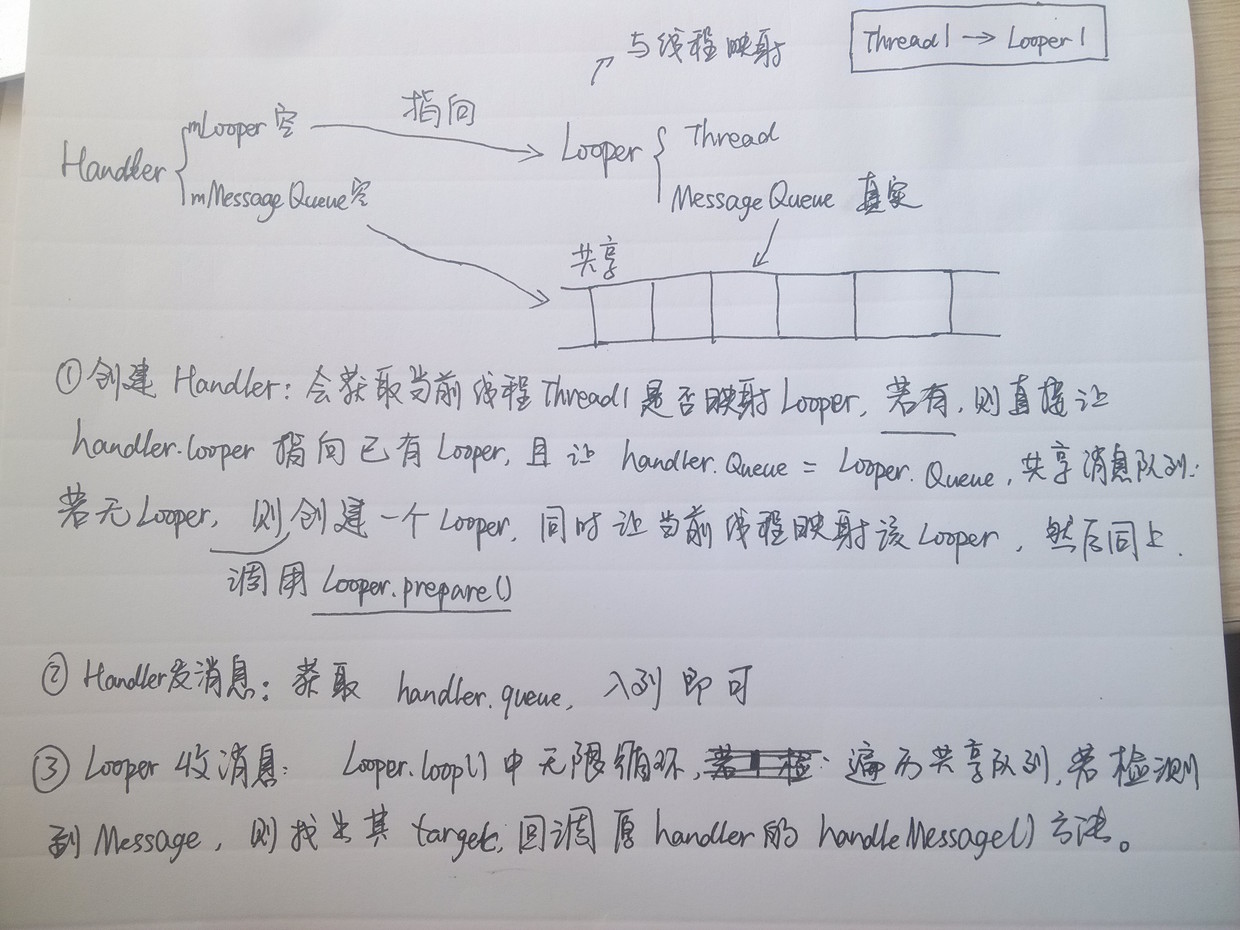 与线程映射
Thread1 → Looper1
Handler
mLooper 空
指向
mMessageQueue 空
Looper
Thread
MessageQueue 真实
共享
①创建 Handler: 会获取当前线程Thread1是否映射Looper, 若有, 则直接让
handler.looper 指向已有Looper, 且让 handler.Queue = Looper.Queue, 共享消息队列;
若无Looper, 则创建一个Looper, 同时让当前线程映射该Looper, 然后同上.
调用 Looper.prepare()
②Handler发消息: 获取 handler.queue, 入列即可
③Looper 收消息: Looper.loop()中无限循环, 遍历共享队列, 若检测
到Message, 则找出其 target, 回调原handler的handleMessage()方法。